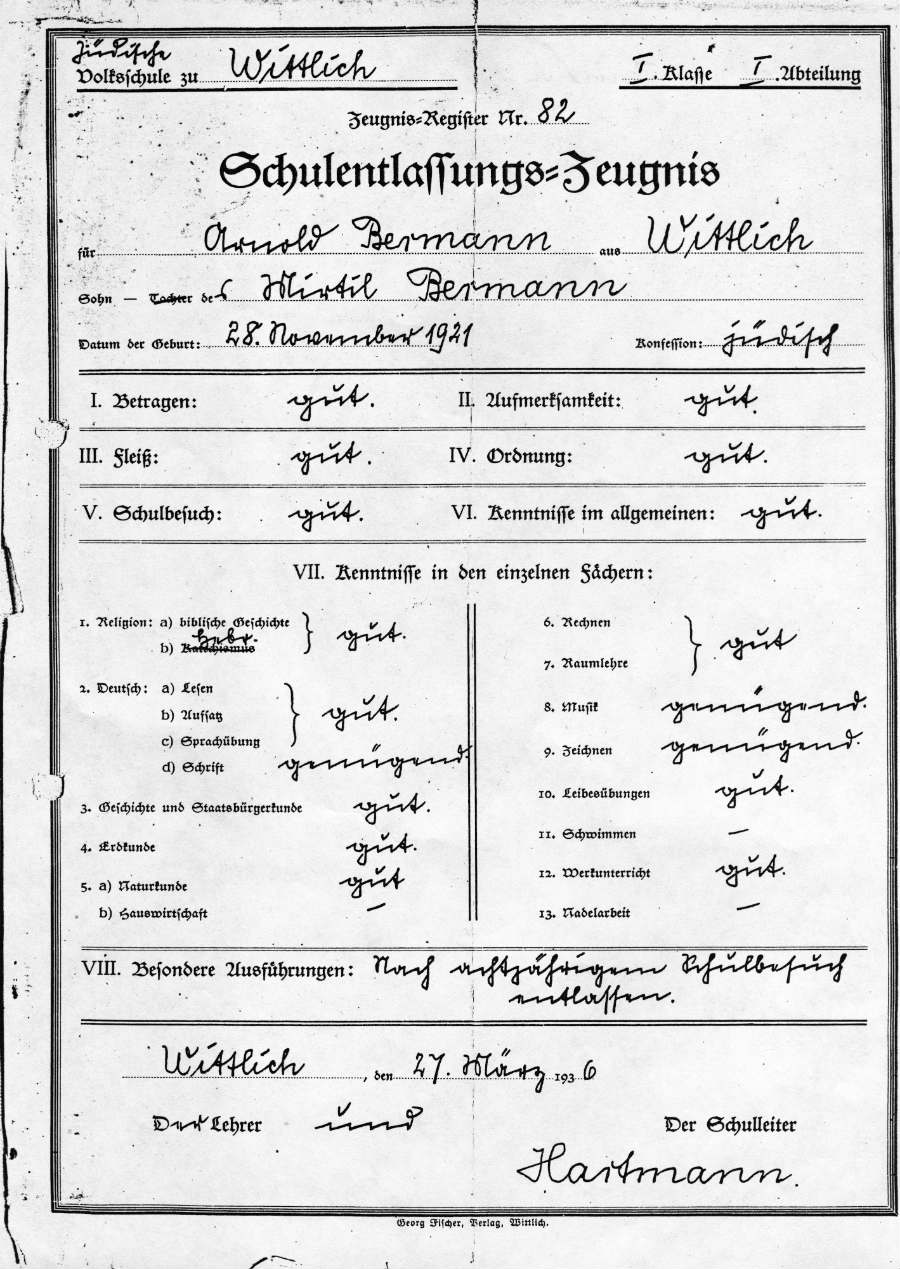 Jüdische
Volksschule zu Wittlich I. Klasse I. Abteilung
Zeugnis=Register Nr. 82
Schulentlassungs=Zeugnis
für Arnold Bermann aus Wittlich
Sohn — Tochter des Mirtil Bermann
Datum der Geburt: 28. November 1921 Konfession: jüdisch
I. Betragen: gut. II. Aufmerksamkeit: gut.
III. Fleiß: gut. IV. Ordnung: gut.
V. Schulbesuch: gut. VI. Kenntnisse im allgemeinen: gut.
VII. Kenntnisse in den einzelnen Fächern:
1. Religion: a) biblische Geschichte
Hebr. gut.
b) Katechismus
2. Deutsch: a) Lesen
b) Aufsatz gut.
c) Sprachübung
d) Schrift genügend.
3. Geschichte und Staatsbürgerkunde gut.
4. Erdkunde gut.
5. a) Naturkunde gut
b) Hauswirtschaft —
6. Rechnen
gut
7. Raumlehre
8. Musik genügend.
9. Zeichnen genügend.
10. Leibesübungen gut.
11. Schwimmen —
12. Werkunterricht gut.
13. Nadelarbeit —
VIII. Besondere Ausführungen: Nach achtjährigem Schulbesuch
entlassen.
Wittlich, den 27. März 1936
Der Lehrer und Der Schulleiter
Hartmann.
Georg Fischer, Verlag, Wittlich.